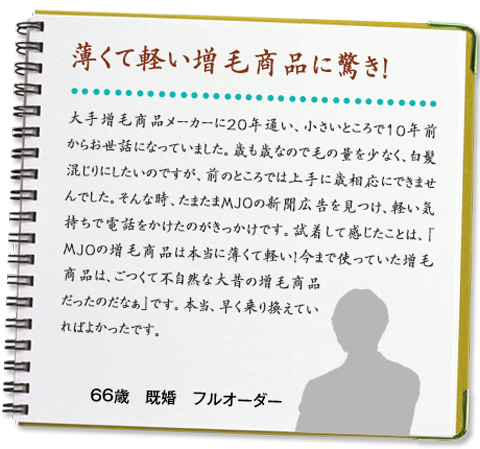 薄くて軽い増毛商品に驚き!
大手増毛商品メーカーに20年通い、小さいところで10年前
からお世話になっていました。歳も歳なので毛の量を少なく、白髪
混じりにしたいのですが、前のところでは上手に歳相応にできませ
んでした。そんな時、たまたまMJOの新聞広告を見つけ、軽い気
持ちで電話をかけたのがきっかけです。試着して感じたことは、「
MJOの増毛商品は本当に薄くて軽い!今まで使っていた増毛
商品は、ごつくて不自然な大昔の増毛商品
だったのだなぁ」です。本当、早く乗り換えてい
ればよかったです。
66歳　既婚　フルオーダー